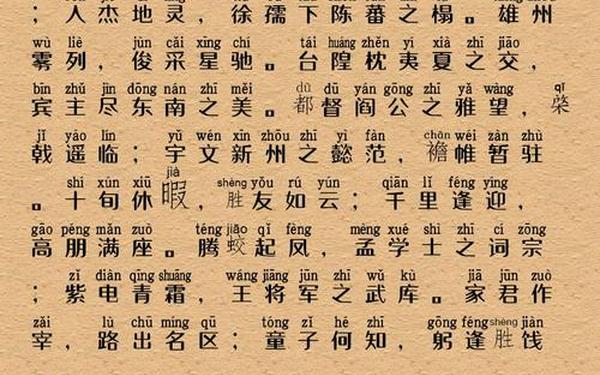 ；人杰地灵，徐孺下陈蕃之榻。雄州
wù liè jùn cǎi xīng chí tái huáng zhěn yí xià zhī jiāo
雾列，俊采星驰。台隍枕夷夏之交，
bīn zhǔ jìn dōng nán zhī měi dū dū yán gōng zhī yǎ wàng qǐ
宾主尽东南之美。都督阎公之雅望，棨
jǐ yáo lín yǔ wén xīn zhōu zhī yì fàn chān wéi zàn zhù
戟遥临；宇文新州之懿范，襜帷暂驻
shí xún xiū jià shèng yǒu rú yún qiān lǐ féng yíng
。十旬休暇，胜友如云；千里逢迎，
gāo péng mǎn zuò téng jiāo qǐ fēng mèng xué shì zhī cí zōng
高朋满座。腾蛟起凤，孟学士之词宗
zǐ diàn qīng shuāng wáng jiāng jūn zhī wǔ kù jiā jūn zuò
；紫电青霜，王将军之武库。家君作
zǎi lù chū míng qū tóng zǐ hé zhī gōng féng shèng
宰，路出名区；童子何知，躬逢胜饯